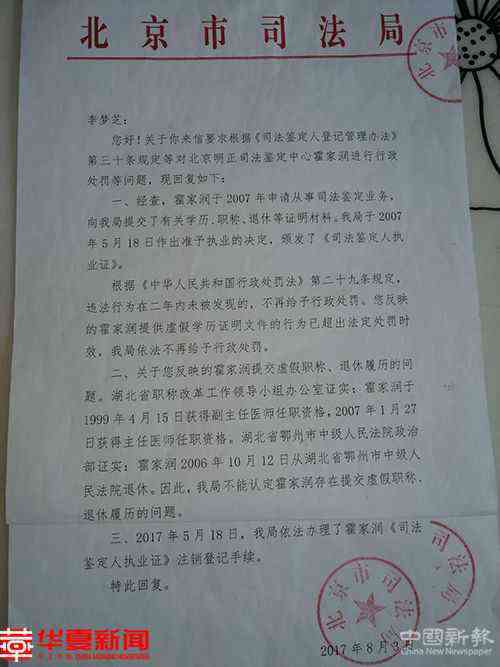 北京市司法局
李梦芝：
您好！关于你来信要求根据《司法鉴定人登记管理办法》
第三十条规定等对北京明正司法鉴定中心霍家润进行行政
处罚等问题，现回复如下：
一、经查，霍家润于2007年申请从事司法鉴定业务，
向我局提交了有关学历、职称、退休等证明材料。我局于2007
年5月18日作出准予执业的决定，颁发了《司法鉴定人执
业证》。
根据《中华人民共和国行政处罚法》第二十九条规定，
违法行为在二年内未被发现的，不再给予行政处罚。您反映
的霍家润提供虚假学历证明文件的行为已超出法定处罚时
效，我局依法不再给予行政处罚。
二、关于您反映的霍家润提交虚假职称、退休履历的问
题。湖北省职称改革工作领导小组办公室证实：霍家润于
1999年4月15日获得副主任医师任职资格，2007年1月27
日获得主任医师任职资格。湖北省鄂州市中级人民法院政治
部证实：霍家润2006年10月12日从湖北省鄂州市中级人
民法院退休。因此，我局不能认定霍家润存在提交虚假职称、
退休履历的问题。
三、2017年5月18日，我局依法办理了霍家润《司法
鉴定人执业证》注销登记手续。
特此回复。
北京市司法局
2017年8月3日
华夏新闻
中國新報
China New Newspaper